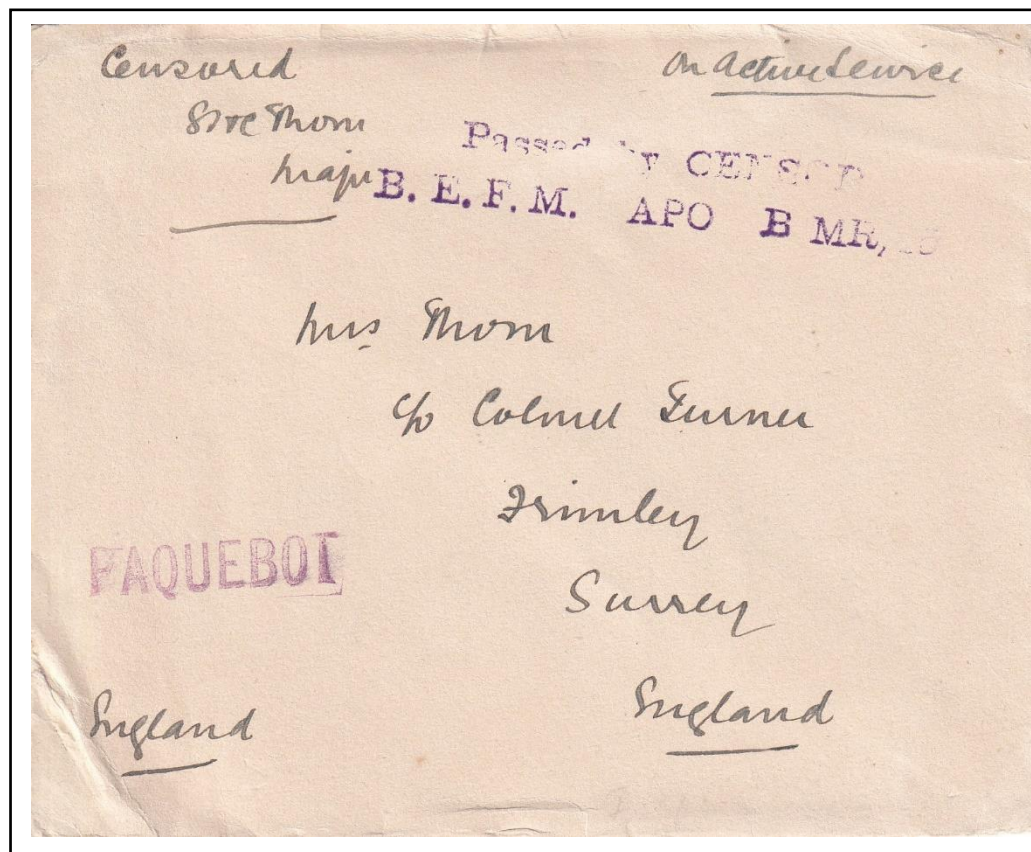 Censored
On Active Service
Thom
Major
Passed by CENSOR
B. E. F. M. APO B MR,
Mrs Thom
c/o Colonel Turner
Frimley
Surrey
PAQUEBOT
England
England